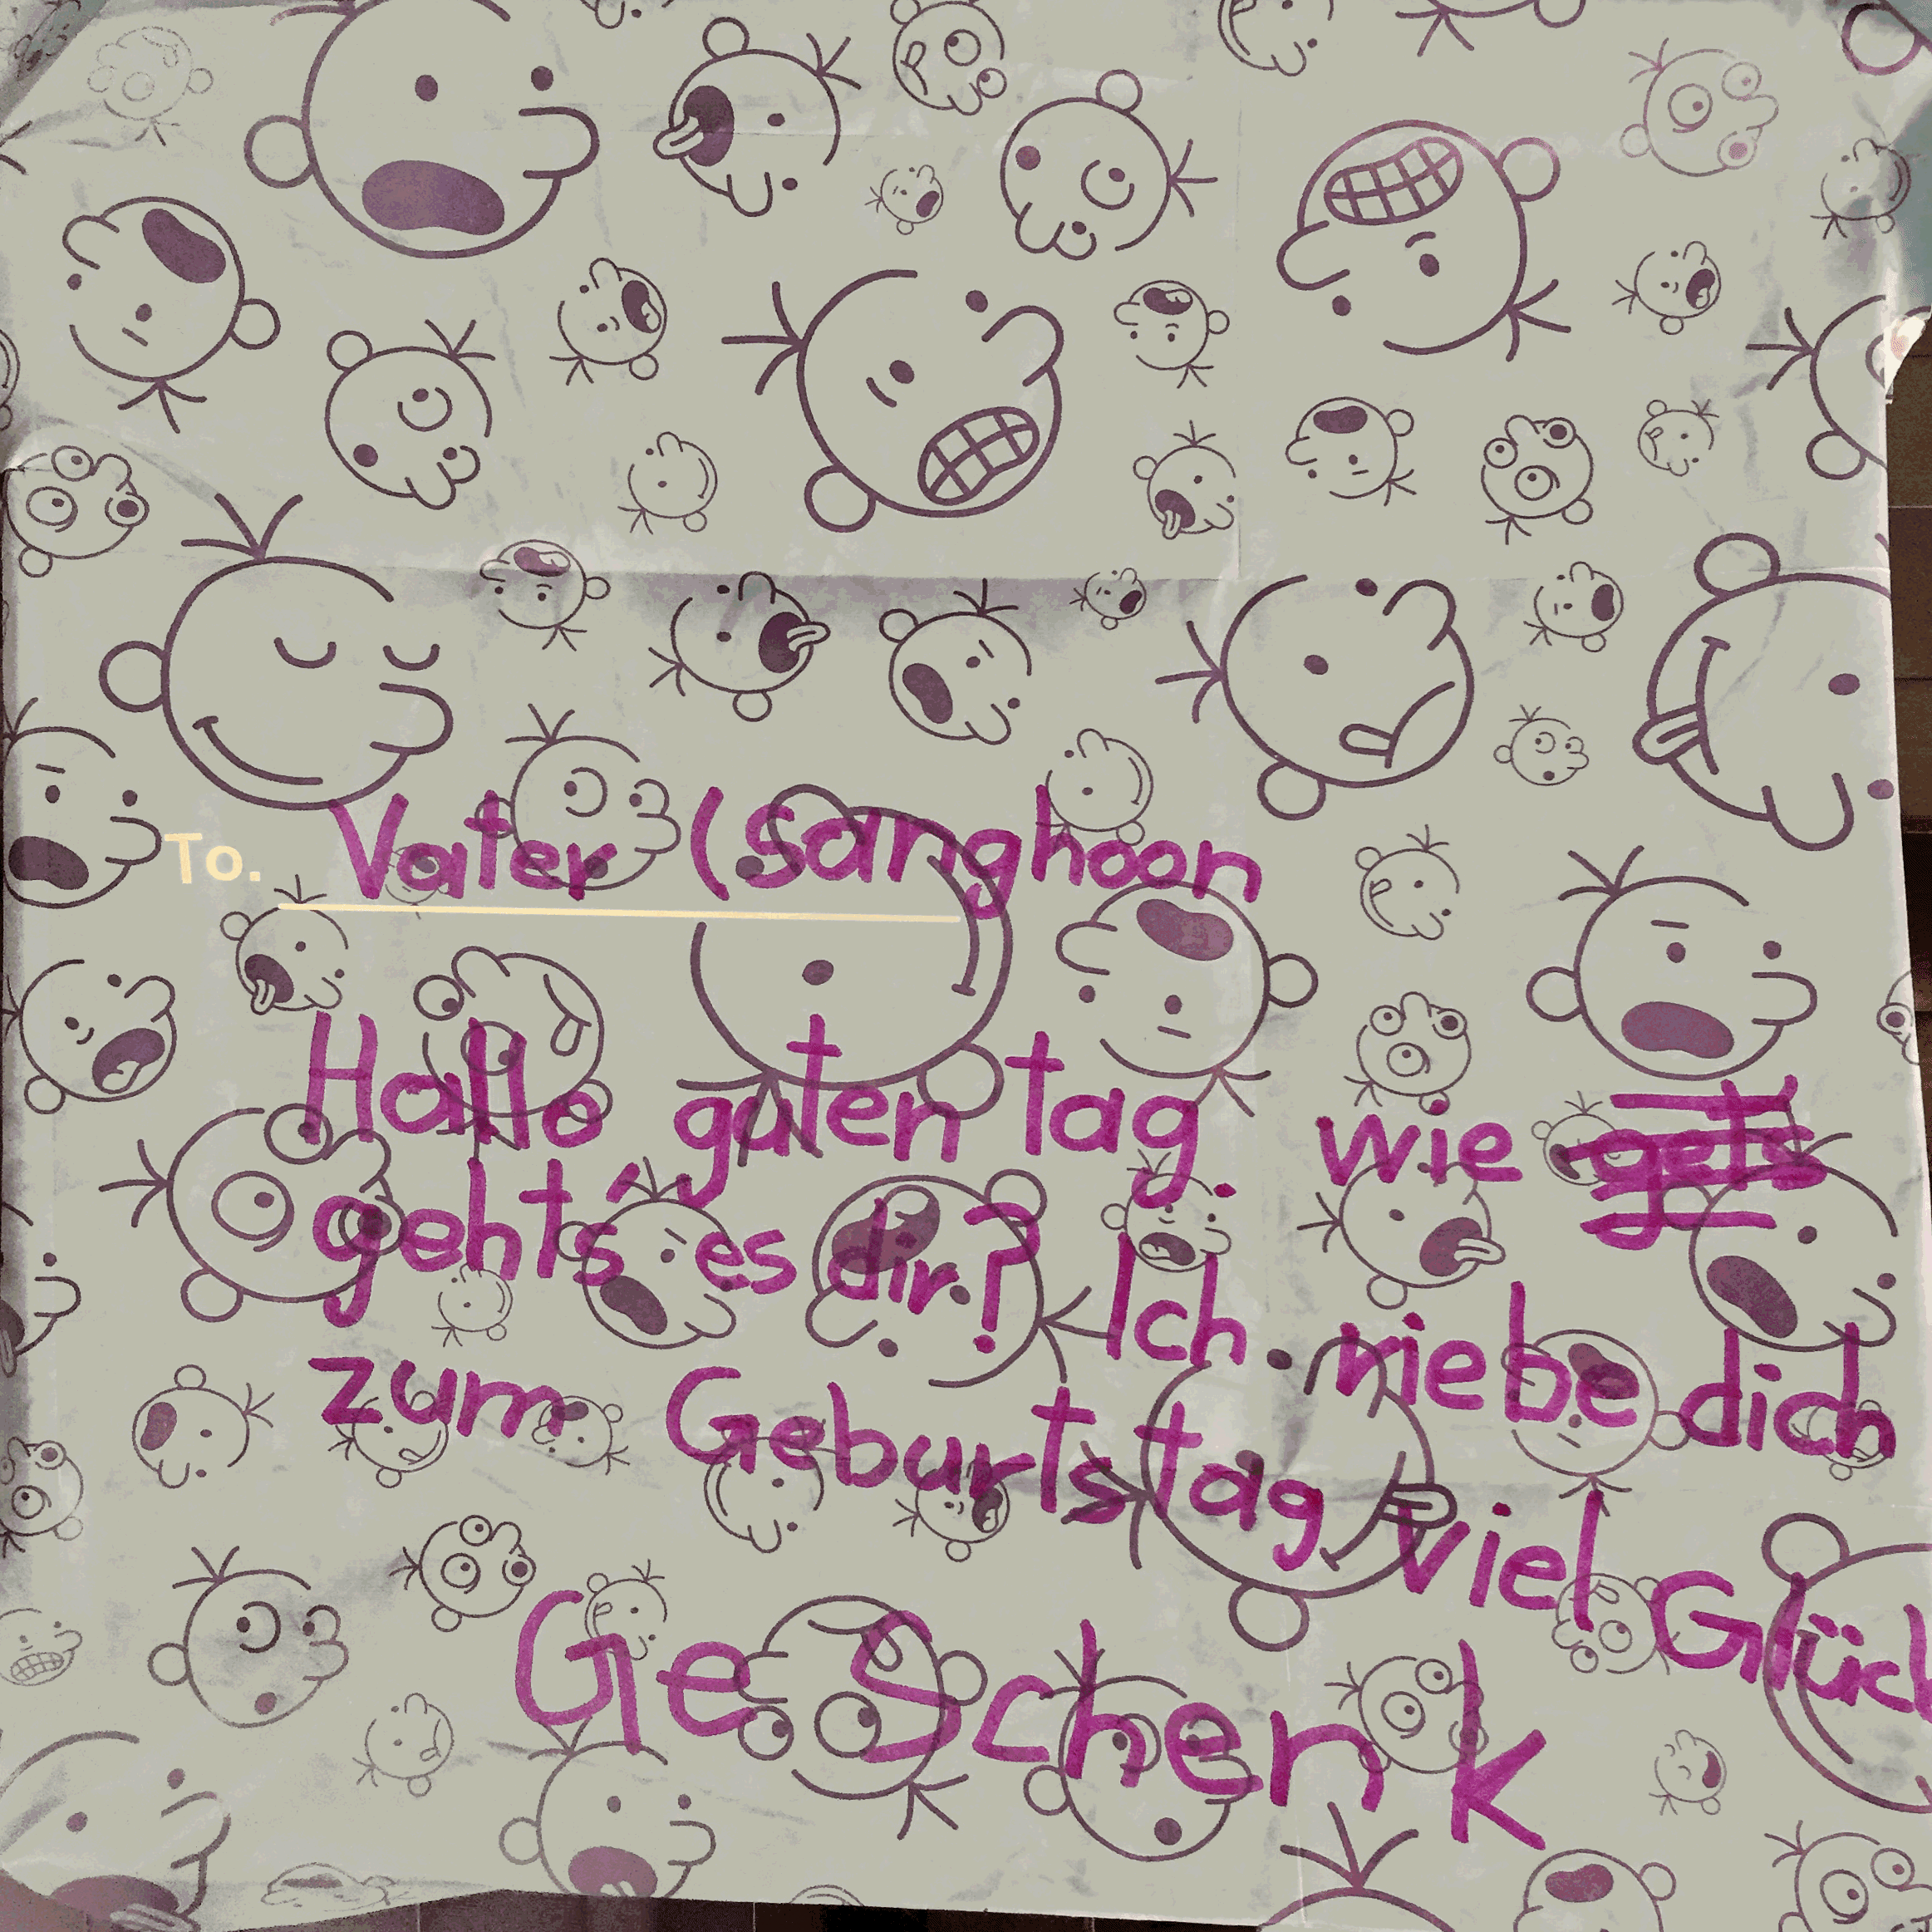 To. Vater (Sanghoon
Hallo guten tag. wie gets
gehts' es dir? Ich riebe dich
zum Geburtstag viel Glück
GeSchenk